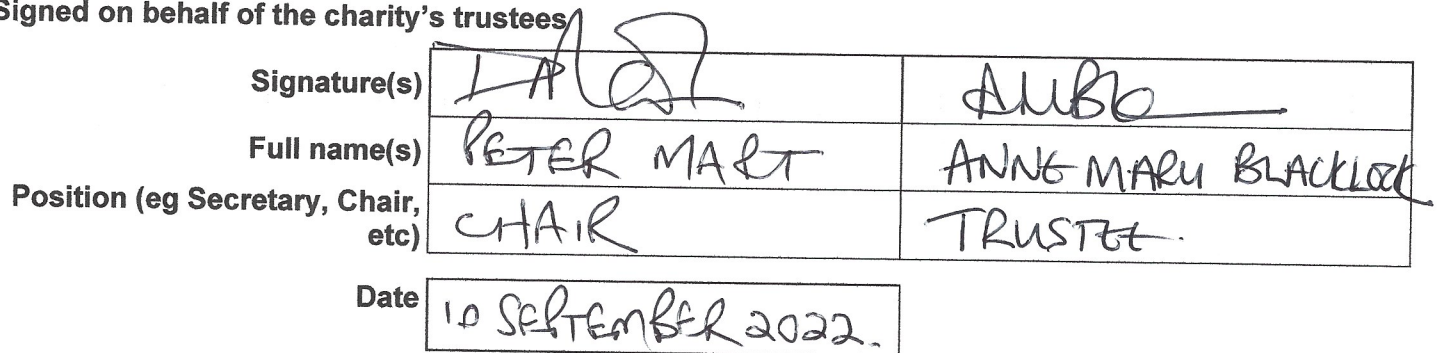 Signed on behalf of the charity's trustees
Signature(s)
Full name(s) PETER MART ANNE MARY BLACKLOCK
Position (eg Secretary, Chair,
etc) CHAIR TRUSTEE.
Date 10 SEPTEMBER 2022.